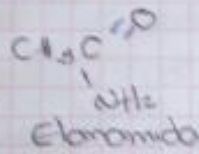 CH3C=O
NH2
Etanamida